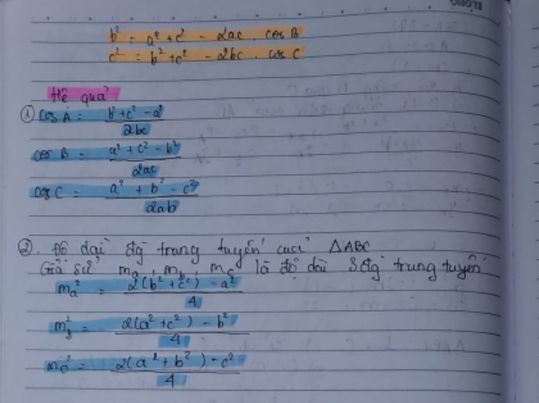 b² = a² + c² - 2ac cos B
c² = b² + c² - 2bc . cos C
Hệ quả
① cos A = b² + c² - a² / 2bc
cos B = a² + c² - b² / 2ac
cos C = a² + b² - c² / 2ab
②. Độ dài đg trung tuyến của ΔABC
Giả sử m_a, m_b, m_c là độ dài 3 đg trung tuyến
m_a² = 2(b² + c²) - a² / 4
m_b² = 2(a² + c²) - b² / 4
m_c² = 2(a² + b²) - c² / 4